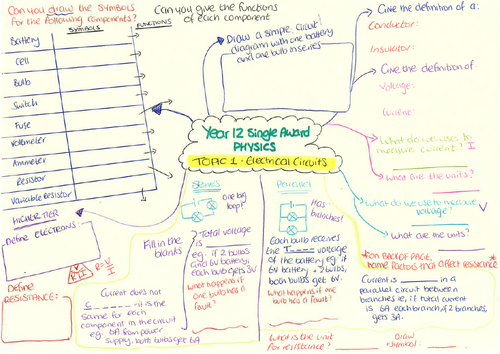 Can you draw the symbols
for the following components?
SYMBOLS
FUNCTIONS
Can you give the functions
of each component
Battery
Cell
Bulb
Switch
Fuse
Voltmeter
Ammeter
Resistor
Variable resistor
Draw a simple circuit
diagram with one battery
and one bulb in series
Give the definition of a:
Conductor:
Insulator:
Give the definition of:
Voltage:
Current:
What do we use to
measure current? I
What are the units?
What do we use to measure
voltage? V
What are the units?
Year 12 Single Award
PHYSICS
TOPIC 1 - Electrical Circuits
HIGHER TIER
Define ELECTRONS:
R=V/I
V
R I
Define
RESISTANCE:
Series
One big
loop!
Fill in the
blanks
Total voltage
is
eg. if 2 bulbs
and 6V battery,
each bulb gets 3V
What happens if
one bulb has a
fault?
Current does not
C - it is the
same for each
component in the circuit
eg. 6A from power
supply, both bulbs get 6A
Parallel
Has
branches!
Each bulb receives
the T voltage
of the battery eg. if
6V battery, 2 bulbs,
both bulbs get 6V.
What happens if one
bulb has a fault?
*On BACK PAGE,
name factors that affect resistance*
Current is in a
parallel circuit between
branches ie, if total current
is 6A each branch, if 2 branches,
gets 3A.
What is the unit
for resistance?
Draw
symbol: